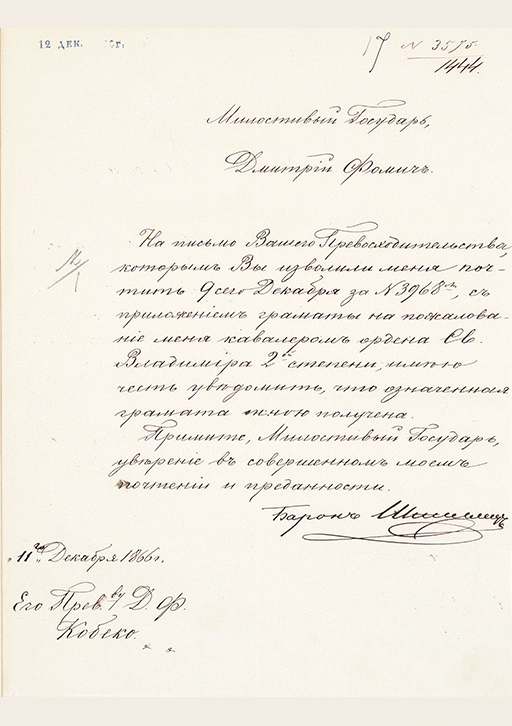 12 ДЕК.
17 N 3575
1444.
Милостивый Государь,
Дмитрій Фомичъ.
На письмо Вашего Превосходительства,
которымъ Вы изволили меня поч-
тить 9 сего Декабря за N 3968, съ
приложеніемъ граматы на пожалова-
ніе меня кавалеромъ ордена Св.
Владиміра 2й степени, имѣю
честь увѣдомить, что означенная
грамата мною получена.
Примите, Милостивый Государь,
увѣреніе въ совершенномъ моемъ
почтеніи и преданности.
Баронъ
"11го" Декабря 1866г.
Его Прев.ву Д. Ф.
Кобеко.